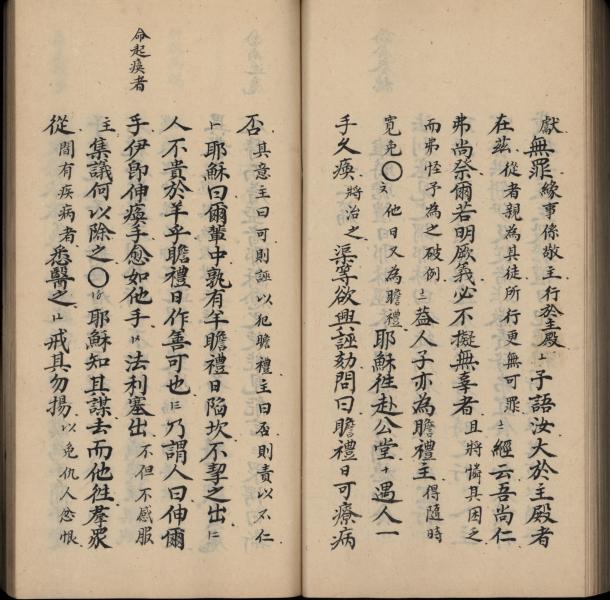 獻無罪緣事係敬主行於主殿⊥予語汝大於主殿者
在茲從者親為其徒所行更無可罪〨經云吾尚仁
弗尚祭爾若明厥義必不擬無辜者且將憐其困乏
而弗怪予為之破例〨蓋人子亦為瞻禮主得隨時
寬免〇〩他日又為瞻禮耶穌徃赴公堂十遇人一
手久瘓將治之渠等欲興誣劾問曰瞻禮日可療病
否其意主曰可則誣以犯瞻禮主曰否則責以不仁
耶穌曰爾輩中孰有羊瞻禮日陷坎不挈之出
人不貴於羊乎瞻禮日作善可也乃謂人曰伸爾
手伊卽伸瘓手愈如他手法利塞出不但不感服
主集議何以除之〇耶穌知其謀去而他徃羣眾
從間有疾病者悉醫之戒其勿揚以免仇人忿恨
命起瘓者